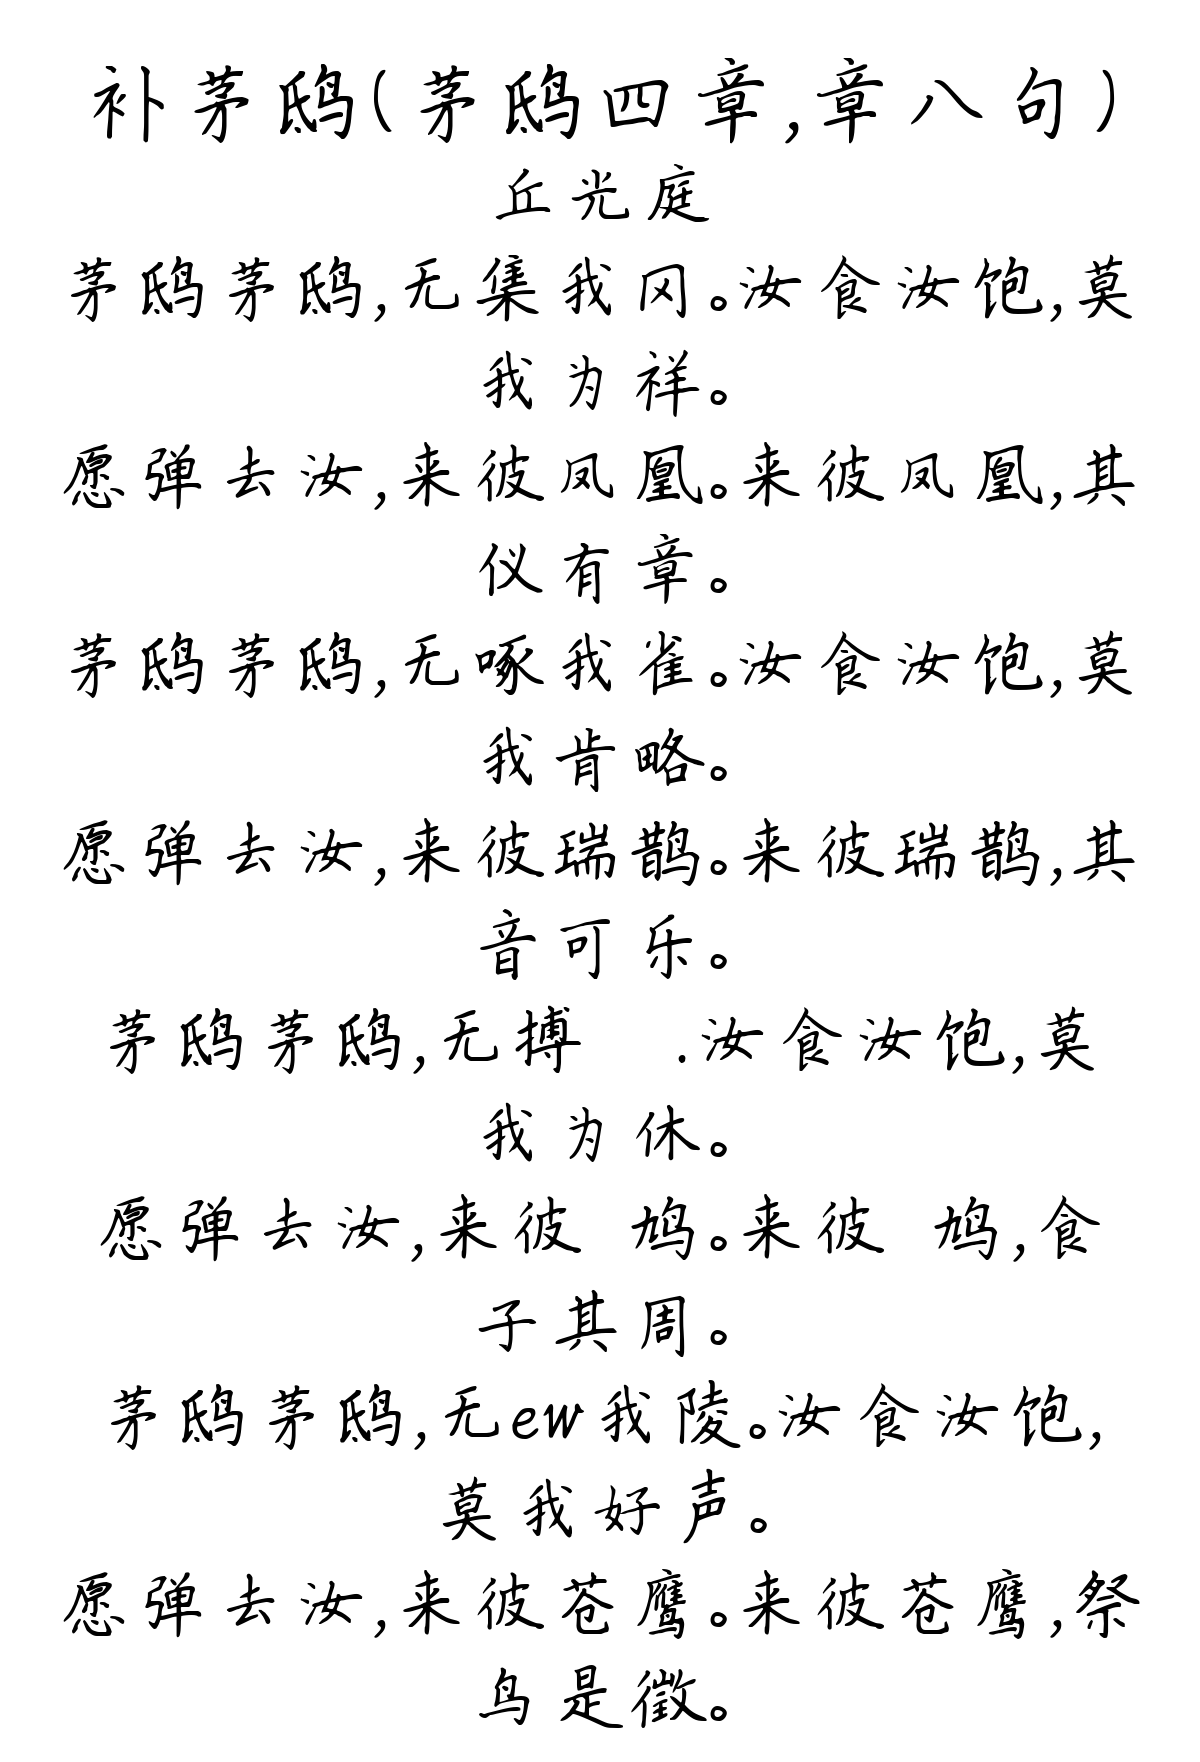 补茅鸱(茅鸱四章,章八句)
丘光庭
茅鸱茅鸱,无集我冈。汝食汝饱,莫
我为祥。
愿弹去汝,来彼凤凰。来彼凤凰,其
仪有章。
茅鸱茅鸱,无啄我雀。汝食汝饱,莫
我肯略。
愿弹去汝,来彼瑞鹊。来彼瑞鹊,其
音可乐。
茅鸱茅鸱,无搏 .汝食汝饱,莫
我为休。
愿弹去汝,来彼 鸠。来彼 鸠,食
子其周。
茅鸱茅鸱,无ew我陵。汝食汝饱,
莫我好声。
愿弹去汝,来彼苍鹰。来彼苍鹰,祭
鸟是徵。